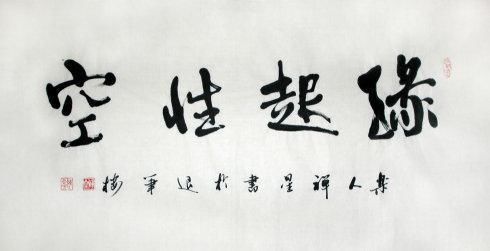 緣起性空
樂人禅星書於退筆樓